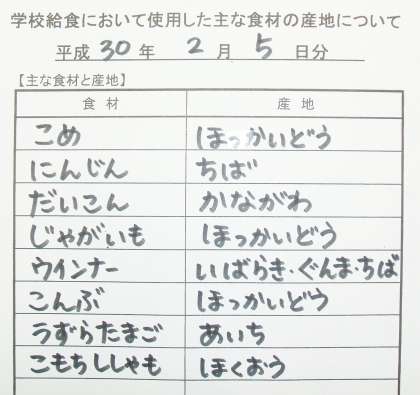 学校給食において使用した主な食材の産地について
平成 30 年 2 月 5 日分
【主な食材と産地】
食材 産地
こめ ほっかいどう
にんじん ちば
だいこん かながわ
じゃがいも ほっかいどう
ウインナー いばらき・ぐんま・ちば
こんぶ ほっかいどう
うずらたまご あいち
こもちししゃも ほくおう